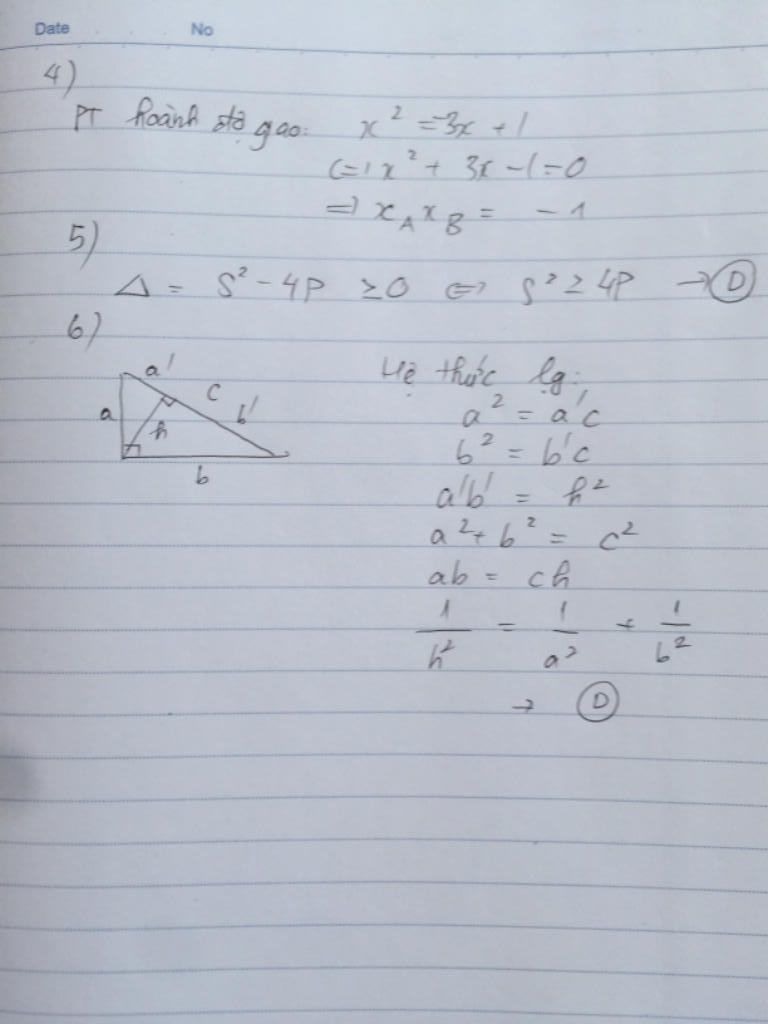 Date No
4)
PT hoành độ giao: x² = -3x + 1
<=> x² + 3x - 1 = 0
=> x_A x_B = - 1
5)
Δ = S² - 4P ≥ 0 <=> S² ≥ 4P → D
6)
a'
c
a
h
b'
b
Hệ thức lg:
a² = a'c
b² = b'c
a'b' = h²
a² + b² = c²
ab = ch
1/h² = 1/a² + 1/b²
→ D